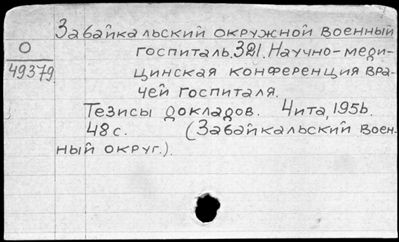 Забайкальский окружной военный
госпиталь, 321. Научно-меди-
О
цинская конференция вра-
49379
чей госпиталя.
Тезисы докладов. Чита, 1956.
48 с. (Забайкальский воен-
ный округ.).